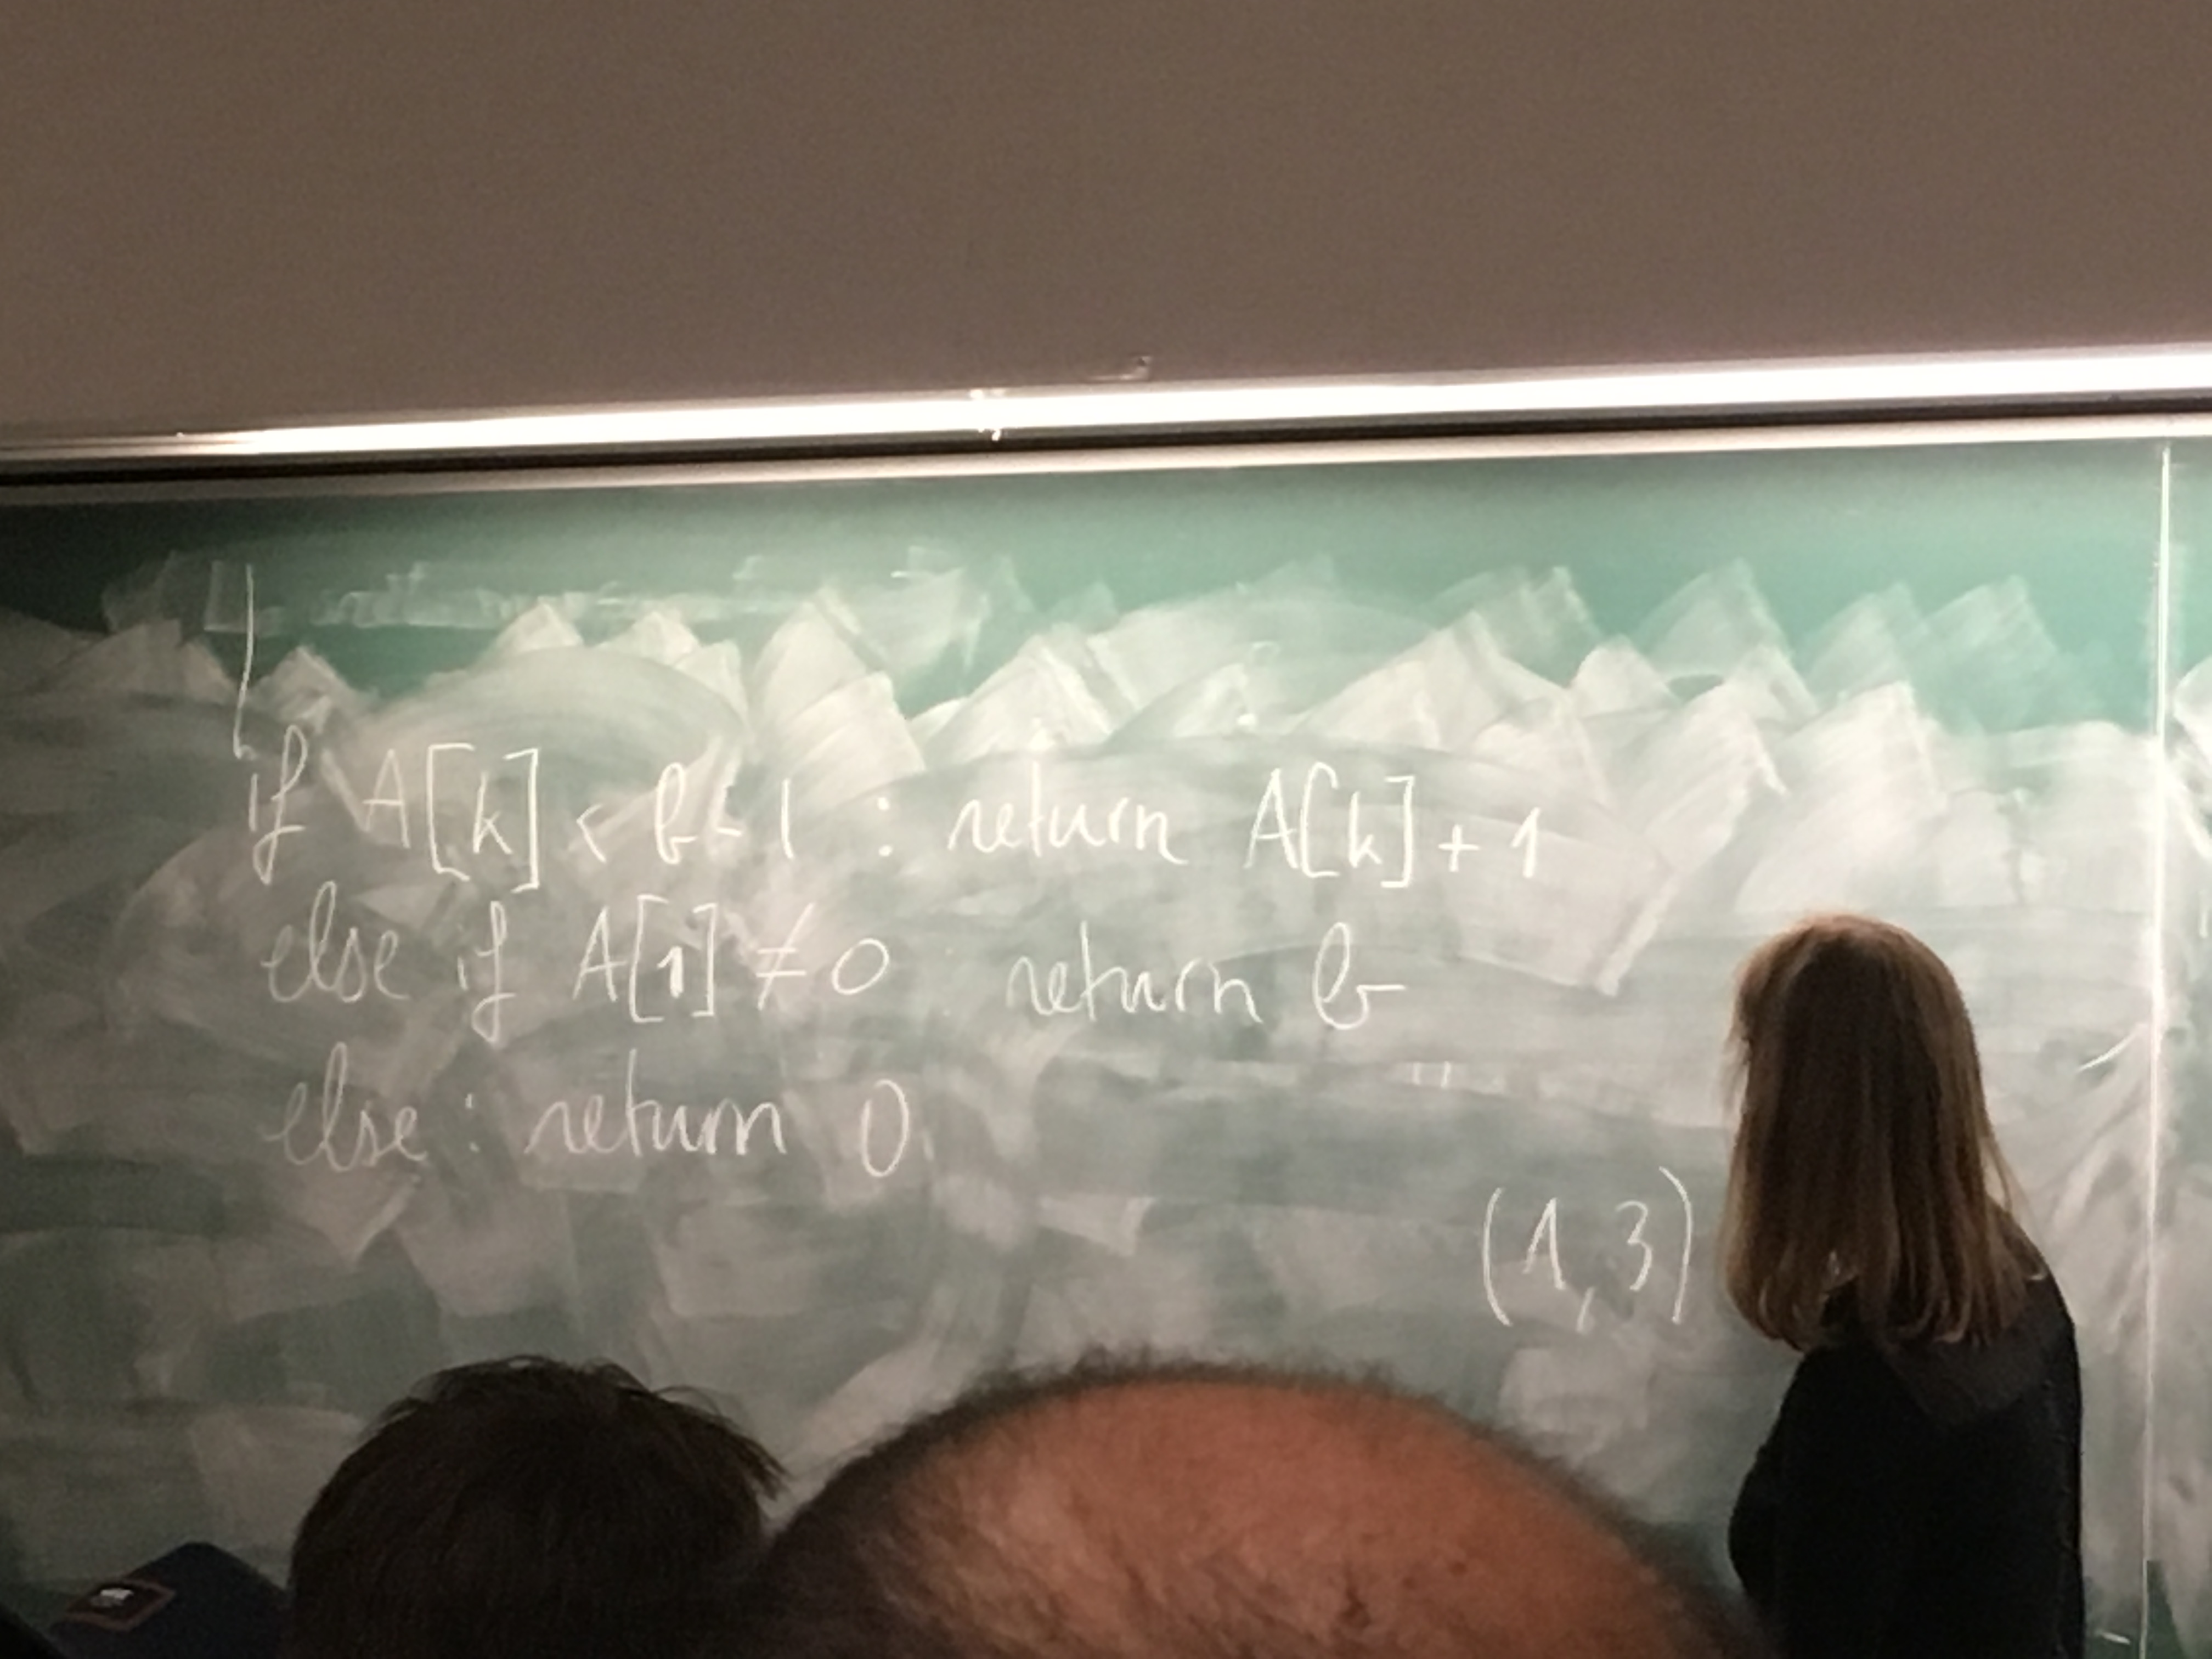 if A[k] < b-1 : return A[k]+1
else if A[1] ≠ 0 return b
else : return 0
(1, 3)